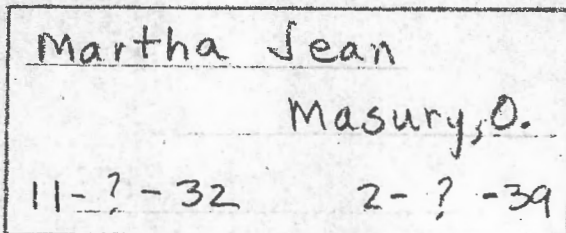 Martha Jean
Masury, O.
11-?-32 2-?-39